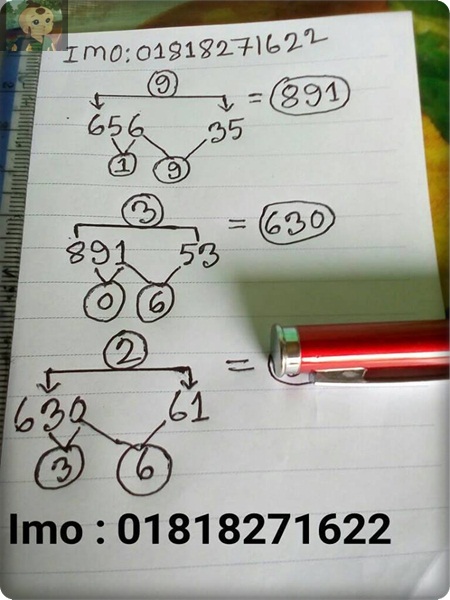 IMO: 01818271622
9
656 35 = 891
1 9
3
891 53 = 630
0 6
2
630 61 =
3 6
Imo : 01818271622